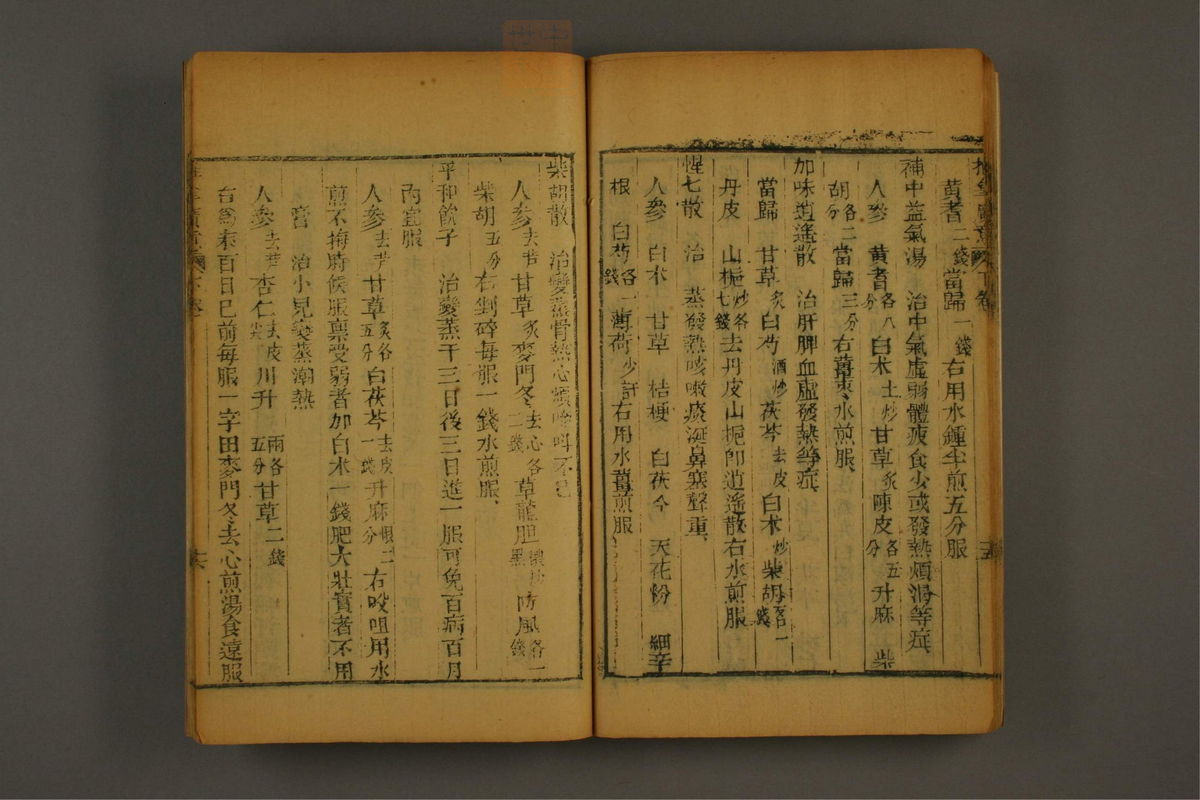 推拿廣意 下卷
黃耆二錢當歸一錢右用水鍾半煎五分服
補中益氣湯 治中氣虛弱體疲食少或發熱煩渴等症
人參 黃耆各八分白朮土炒甘草炙陳皮各五分升麻 柴
胡各二分當歸三分右薑棗水煎服
加味逍遙散 治肝脾血虛發熱等症
當歸 甘草炙白芍酒炒茯苓去皮白朮炒柴胡各一錢
丹皮 山梔炒各七錢去丹皮山梔卽逍遙散右水煎服
惺七散 治 蒸發熱咳嗽痰涎鼻塞聲重
人參 白朮 甘草 桔梗 白茯今 天花粉 細辛
根 白芍各一錢薄荷少許右用水薑煎服
柴胡散 治變蒸骨熱心煩啼叫不已
人參去芦甘草炙麥門冬去心各二錢草龍胆 防風各一錢
柴胡五分右剉碎每服一錢水煎服
平和飲子 治變蒸于三日後三日進一服可免百病百月
內宜服
人參去芦甘草炙各五分白茯苓去皮一錢升麻 二分右㕮咀用水
煎不拘時候服禀受弱者加白朮一錢肥大壯實者不用
膏 治小兒變蒸潮熱
人參去芦杏仁去皮尖川升 甘草二錢
右爲末百日已前每服一字 麥門冬去心煎湯食遠服